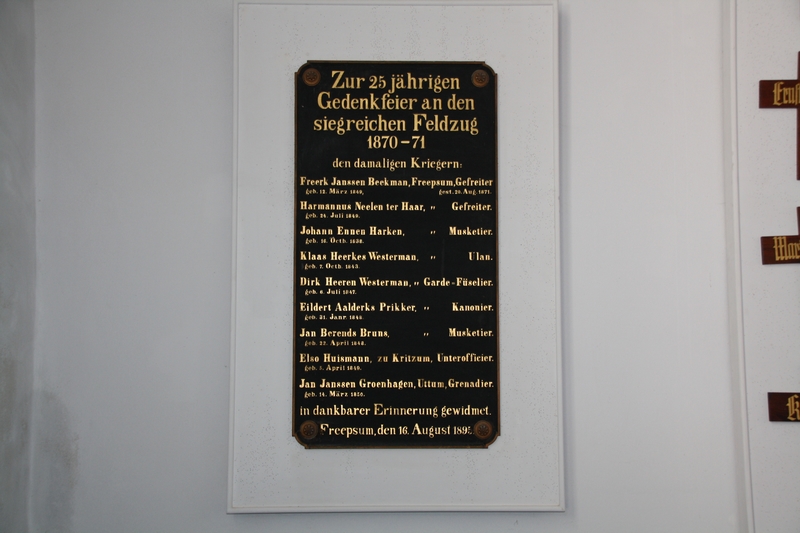 Zur 25 jährigen
Gedenkfeier an den
siegreichen Feldzug
1870-71
den damaligen Kriegern:
Freerk Janssen Beekman, Freepsum, Gefreiter
geb. 12. März 1849, gest. 20. Aug. 1871.
Harmannus Neelen ter Haar, " Gefreiter.
geb. 24. Juli 1849.
Johann Ennen Harken, " Musketier.
geb. 18. Octb. 1838.
Klaas Heerkes Westerman, " Ulan.
geb. 7. Octb. 1843.
Dirk Heeren Westerman, " Garde-Füselier.
geb. 6. Juli 1847.
Eildert Aalderks Prikker, " Kanonier.
geb. 31. Janr. 1848.
Jan Berends Bruns, " Musketier.
geb. 22. April 1848.
Elso Huismann, zu Kritzum, Unterofficier.
geb. 5. April 1849.
Jan Janssen Groenhagen, Uttum, Grenadier.
geb. 14. März 1850.
in dankbarer Erinnerung gewidmet.
Freepsum, den 16. August 1895.